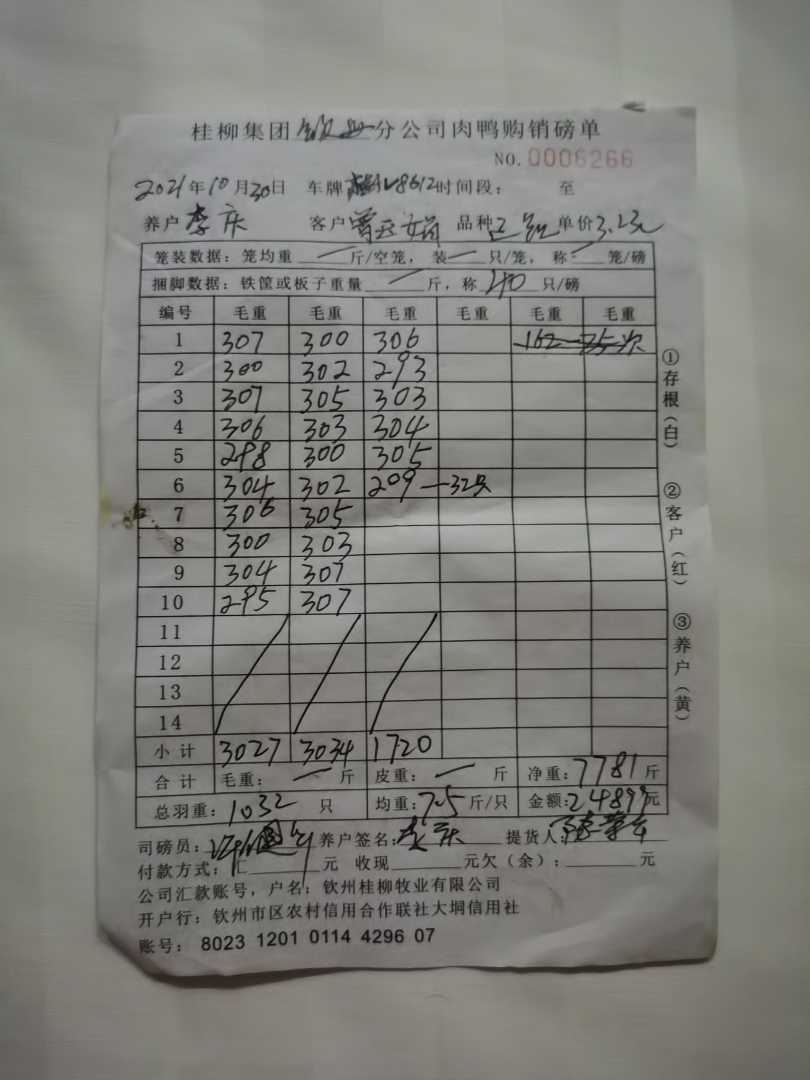 桂柳集团钦州分公司肉鸭购销磅单
NO.0006266
2021年10月30日 车牌 V8612 时间段： 至
养户 李庆 客户 曾 品种 单价3.2元
笼装数据：笼均重 一 斤/空笼， 装 一 只/笼， 称 一 笼/磅
捆脚数据：铁筐或板子重量 一 斤，称 40 只/磅
编号 毛重 毛重 毛重 毛重 毛重 毛重
1 307 300 306 162 25次
2 300 302 293
3 307 305 303
4 306 303 304
5 298 300 305
6 304 302 209 —32只
7 306 305
8 300 303
9 304 307
10 295 307
11
12
13
14
小计 3027 3034 1720
合计 毛重： 一 斤 皮重： 一 斤 净重：7781斤
总羽重：1032 只 均重：7.5斤/只 金额：24899元
司磅员： 养户签名：李庆 提货人：
付款方式：汇 元 收现 元欠（余）： 元
公司汇款账号，户名：钦州桂柳牧业有限公司
开户行：钦州市区农村信用合作联社大垌信用社
账号： 8023 1201 0114 4296 07
①存根（白）
②客户（红）
③养户（黄）